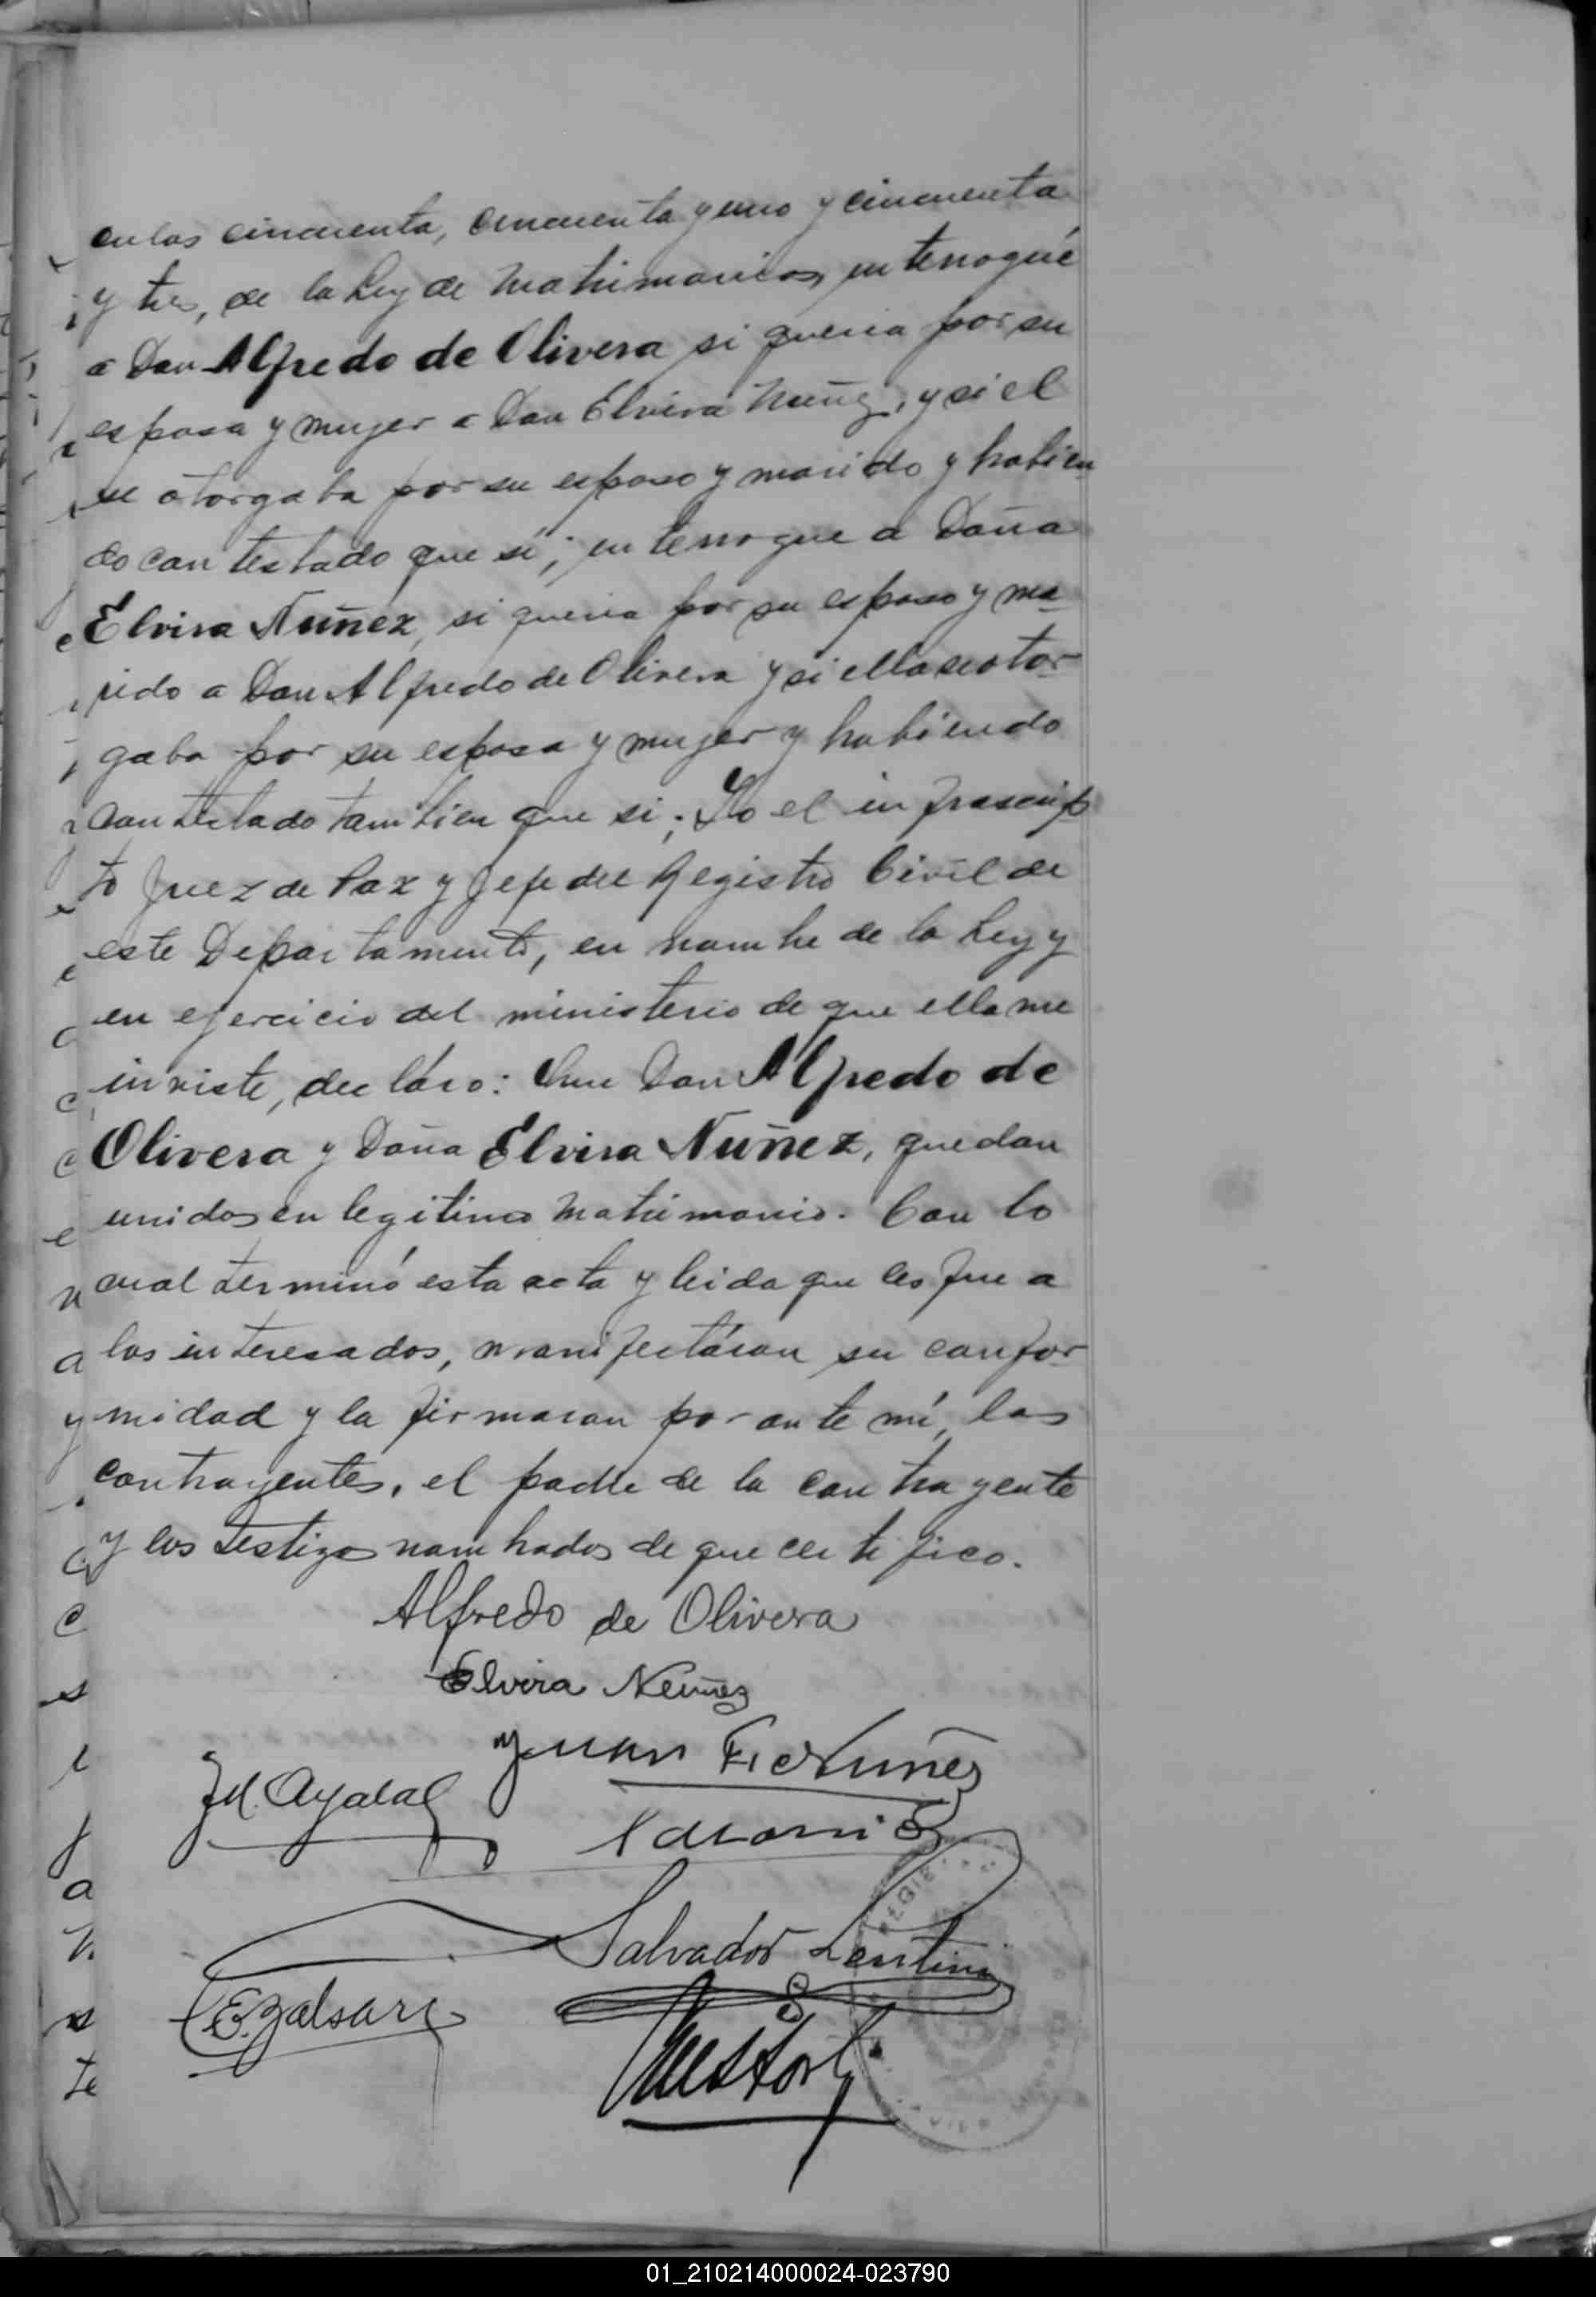 culos cincuenta, cincuenta y uno y cincuenta
y tres, de la Ley de Matrimonios, interrogué
a Don Alfredo de Olivera si queria por su
esposa y mujer a Don Elvira Nuñez, y si el
se otorgaba por su esposo y marido y habien
do contestado que sí; interrogue a Doña
Elvira Nuñez, si queria por su esposo y ma-
rido a Don Alfredo de Olivera y si ella se otor-
gaba por su esposa y mujer y habiendo
contestado tambien que si; Yo el infrascrip-
to Juez de Paz y Jefe del Registro Civil de
este Departamento, en nombre de la Ley y
en ejercicio del ministerio de que ella me
inviste, decláro: Que Don Alfredo de
Olivera y Doña Elvira Nuñez, quedan
unidos en legitimo Matrimonio. Con lo
cual terminó esta acta y leida que les fue a
los interesados, manifestáron su confor-
midad y la firmaron por ante mí, los
contrayentes, el padre de la contrayente
y los testigos nombrados de que certifico.
Alfredo de Olivera
Elvira Nuñez
Juan F. Nuñez
Ayala
Salvador Lentini
01_210214000024-023790